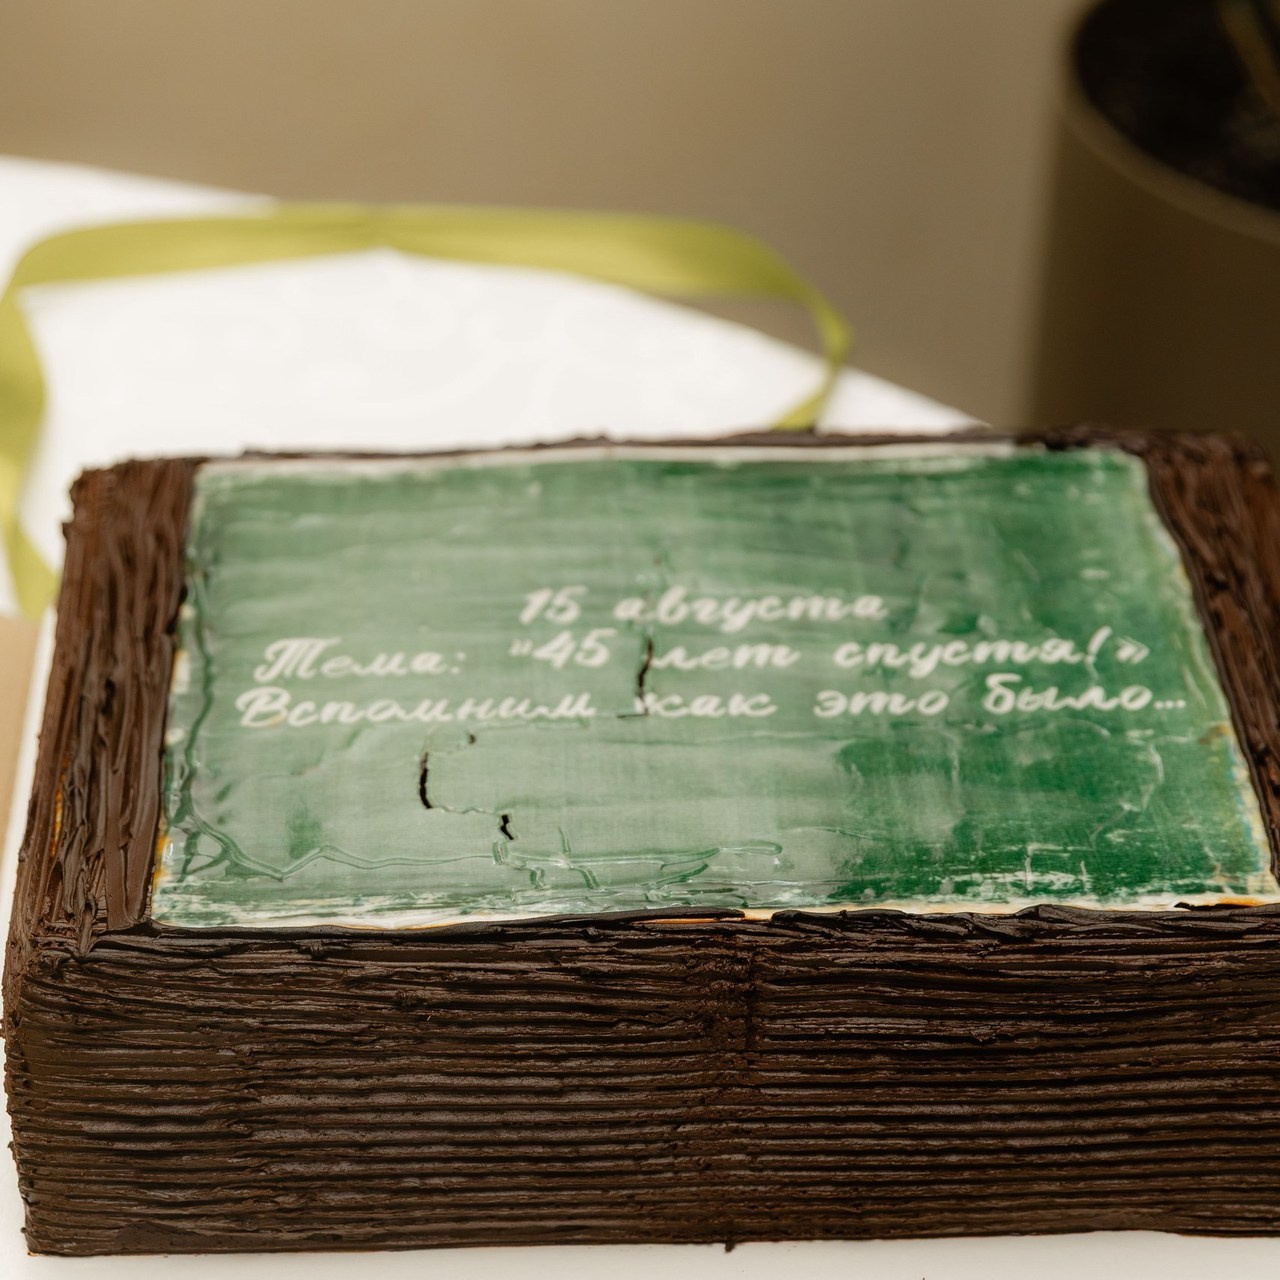 15 августа
Тема: "45 лет спустя!»
Вспомним как это было...